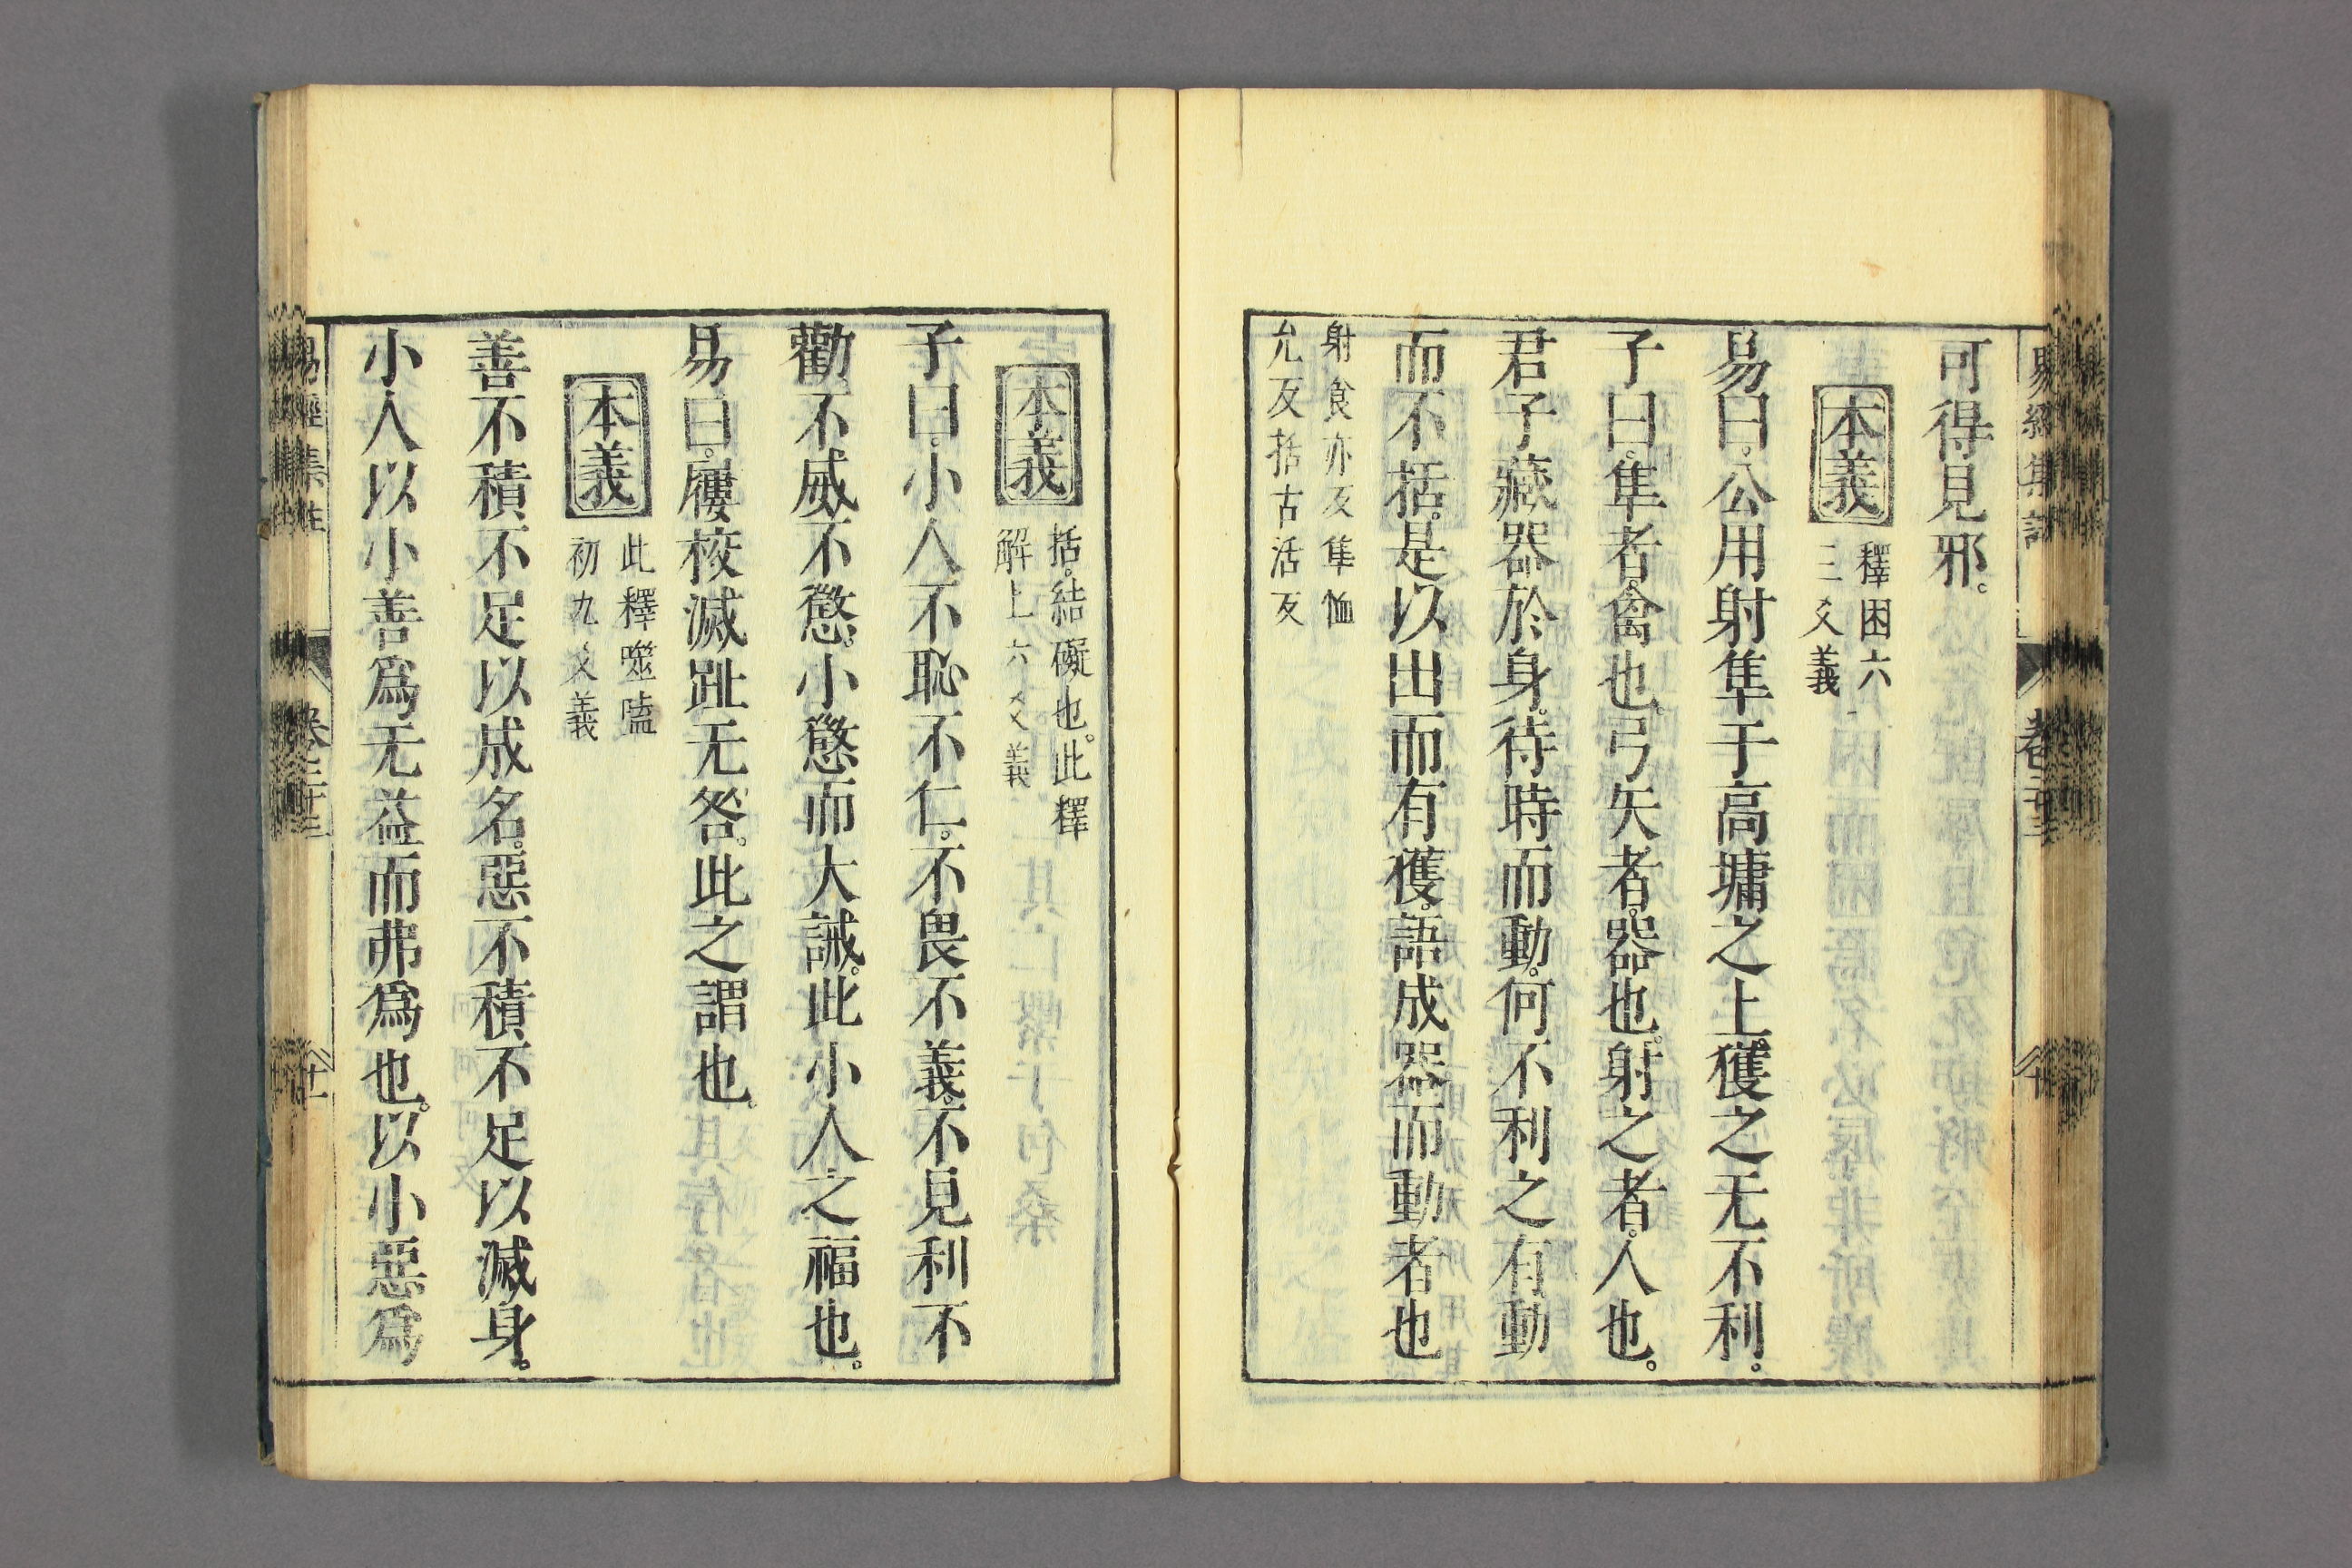 可得見邪。
本義 釋困六
三爻義
易曰。公用射隼于高墉之上。獲之无不利。
子曰。隼者。禽也。弓矢者。器也。射之者。人也。
君子藏器於身。待時而動。何不利之有動
而不括。是以出而有獲。語成器而動者也
射食亦反隼恤
允反括古活反
本義 括。結礙也。此釋
解上六爻義
子曰。小人不恥不仁。不畏不義。不見利不
勸。不威不懲。小懲而大誡。此小人之福也。
易曰。屨校滅趾无咎。此之謂也。
本義 此釋噬嗑
初九爻義
善不積不足以成名。惡不積不足以滅身。
小人以小善爲无益而弗爲也。以小惡爲